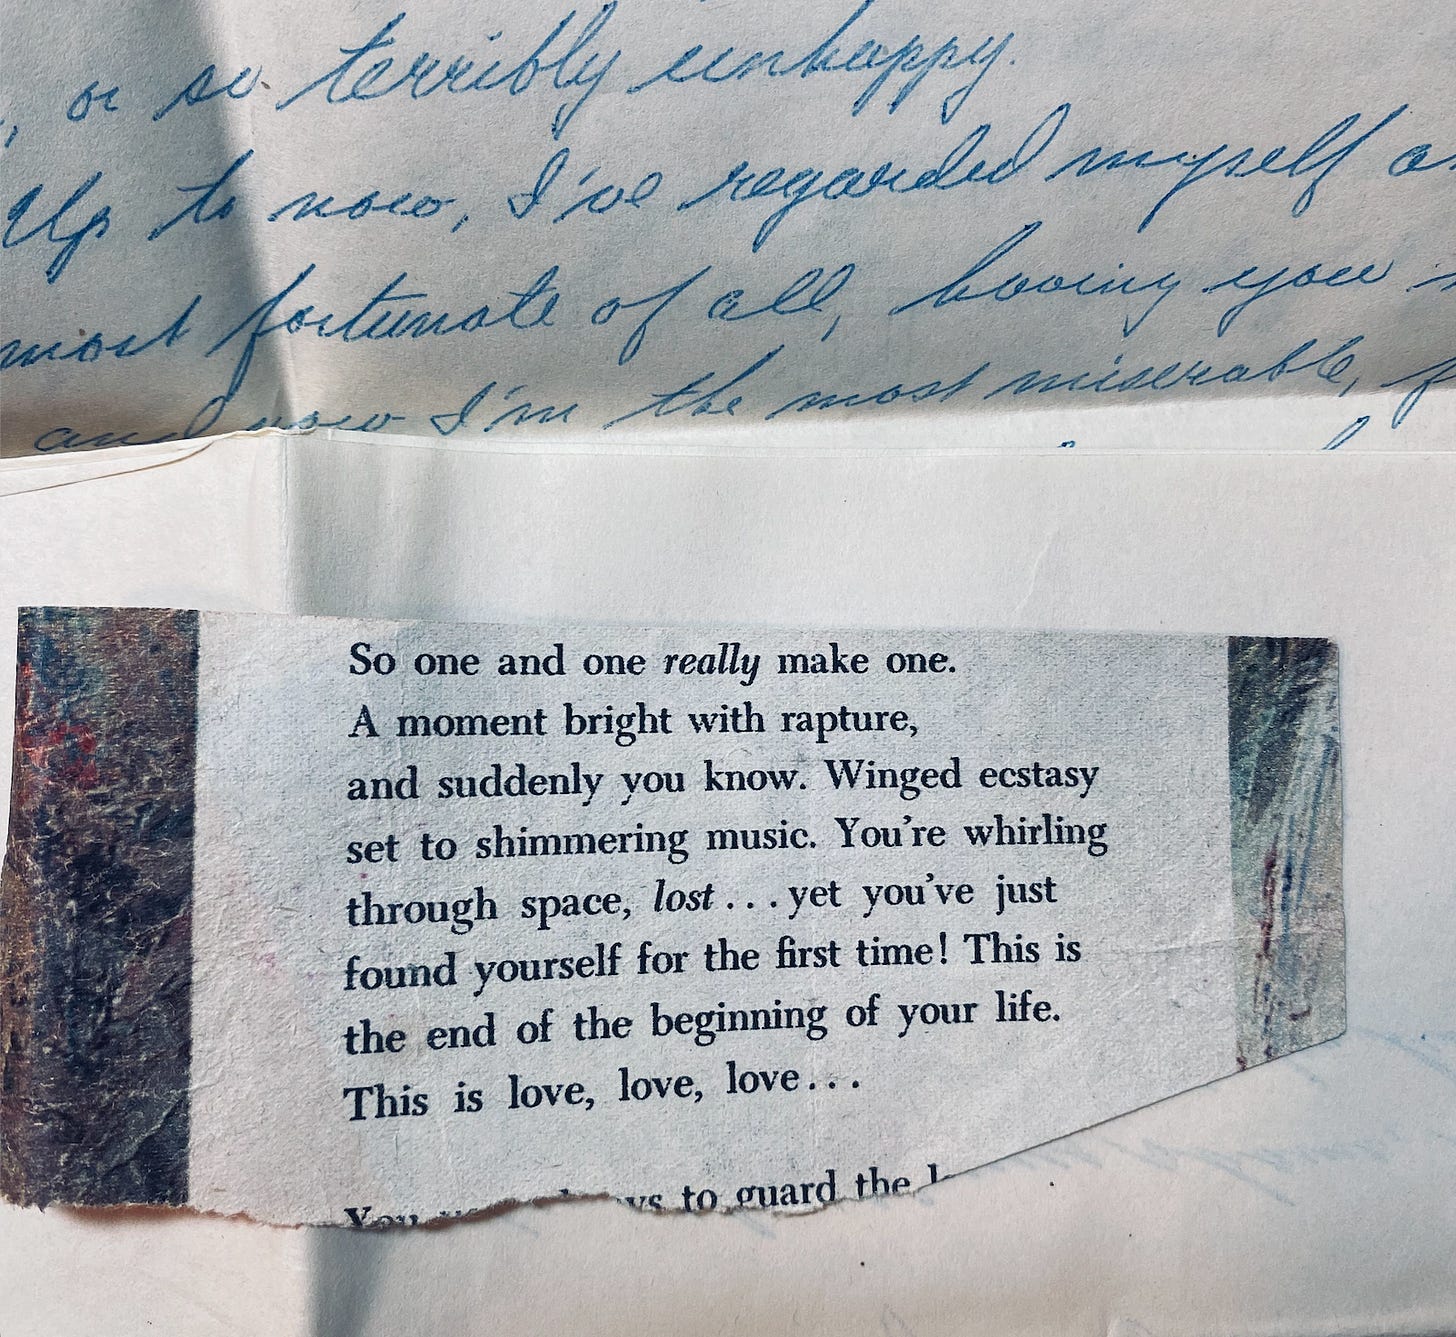 , or so terribly unhappy.
Up to now, I've regarded myself
most fortunate of all, having you
and now I'm the most miserable,
So one and one really make one.
A moment bright with rapture,
and suddenly you know. Winged ecstasy
set to shimmering music. You're whirling
through space, lost . . . yet you've just
found yourself for the first time! This is
the end of the beginning of your life.
This is love, love, love . . .
to guard the